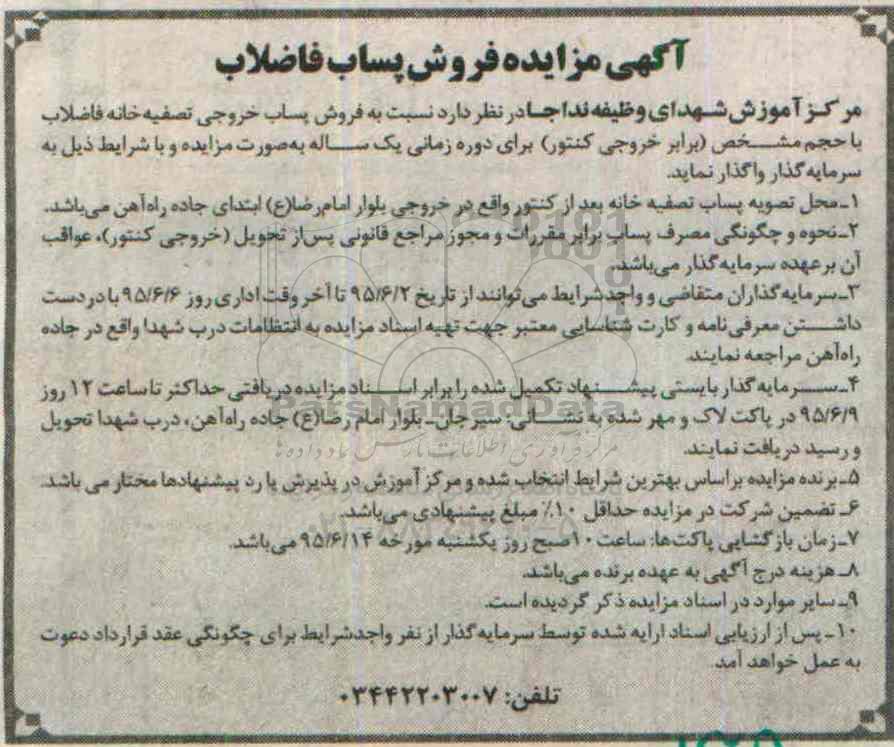 آگهی مزایده فروش پساب فاضلاب
مرکز آموزش شهدای وظیفه نداجا در نظر دارد نسبت به فروش پساب خروجی تصفیه خانه فاضلاب
با حجم مشخص (برابر خروجی کنتور) برای دوره زمانی یک ساله به‌صورت مزایده و با شرایط ذیل به
سرمایه گذار واگذار نماید.
۱ـ محل تصویه پساب تصفیه خانه بعد از کنتور واقع در خروجی بلوار امام رضا(ع) ابتدای جاده راه‌آهن می‌باشد.
۲ـ نحوه و چگونگی مصرف پساب برابر مقررات و مجوز مراجع قانونی پس از تحویل (خروجی کنتور)، عواقب
آن بر عهده سرمایه گذار می‌باشد.
۳ـ سرمایه گذاران متقاضی و واجد شرایط می‌توانند از تاریخ ۹۵/۶/۲ تا آخر وقت اداری روز ۹۵/۶/۶ با در دست
داشتن معرفی نامه و کارت شناسایی معتبر جهت تهیه اسناد مزایده به انتظامات درب شهدا واقع در جاده
راه‌آهن مراجعه نمایند.
۴ـ سرمایه گذار بایستی پیشنهاد تکمیل شده را برابر اسناد مزایده دریافتی حداکثر تا ساعت ۱۲ روز
۹۵/۶/۹ در پاکت لاک و مهر شده به نشانی: سیرجان ـ بلوار امام رضا(ع) جاده راه‌آهن، درب شهدا تحویل
و رسید دریافت نمایند.
۵ـ برنده مزایده براساس بهترین شرایط انتخاب شده و مرکز آموزش در پذیرش یا رد پیشنهادها مختار می باشد.
۶ـ تضمین شرکت در مزایده حداقل ۱۰٪ مبلغ پیشنهادی می‌باشد.
۷ـ زمان بازگشایی پاکت‌ها: ساعت ۱۰ صبح روز یکشنبه مورخه ۹۵/۶/۱۴ می‌باشد.
۸ـ هزینه درج آگهی به عهده برنده می‌باشد.
۹ـ سایر موارد در اسناد مزایده ذکر گردیده است.
۱۰ـ پس از ارزیابی اسناد ارایه شده توسط سرمایه گذار از نفر واجد شرایط برای چگونگی عقد قرارداد دعوت
به عمل خواهد آمد.
تلفن: ۰۳۴۴۲۲۰۳۰۰۷
ParsNamadData